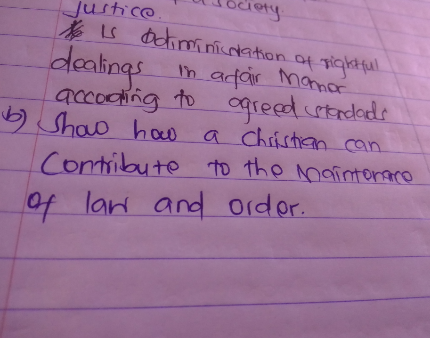 society.
Justice.
is detminictation of rightful
dealings in afair Manor
according to agreed stardads
b) Show how a Christian can
Contribute to the Maintenace
of law and order.